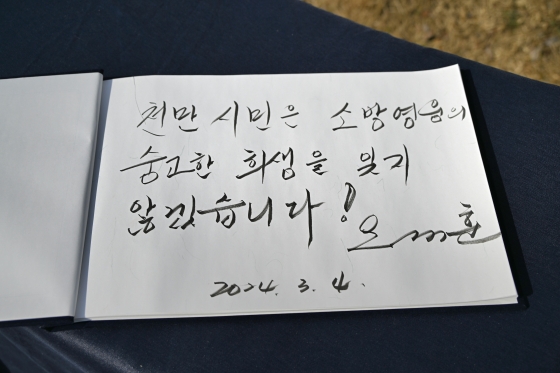 천만 시민은 소방영웅의
숭고한 희생을 잊지
않겠습니다!
2024. 3. 4.